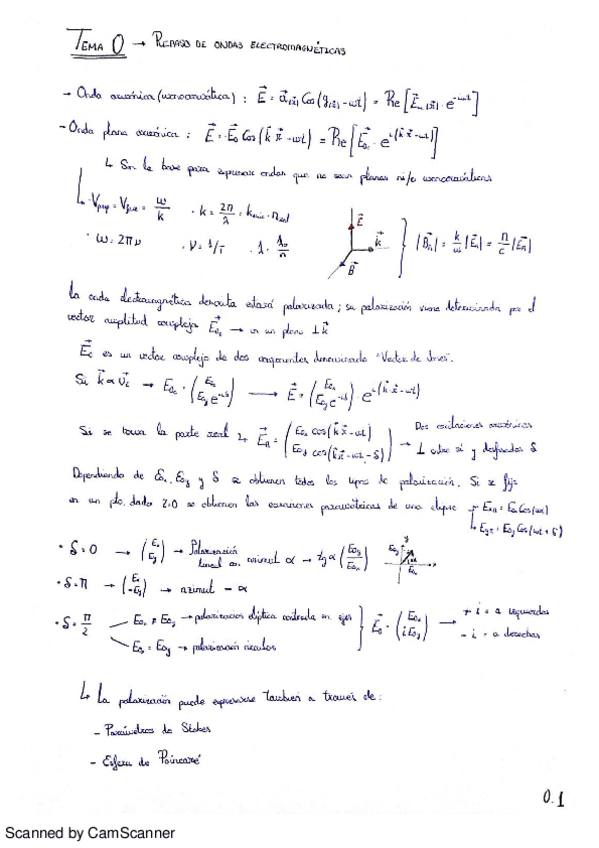 TEMA 0 → REPASO DE ONDAS ELECTROMAGNÉTICAS
- Onda armónica (monocromática) : E⃗ = a⃗(x⃗) Cos(g(x⃗) - wt) = Re[E⃗(x⃗) · e^-iwt]
- Onda plana armónica : E⃗ = E⃗o Cos(k⃗ x⃗ - wt) = Re[E⃗o e^i(k⃗·x⃗ - wt)]
↳ Son la base para expresar ondas que no sean planas ni/o monocromáticas
↳ · Vprop = Vfase = w/k · k = 2π/λ = · n
E⃗ k⃗ B⃗ } |B⃗| = k/w |E⃗| = n/c |E⃗|
· w = 2πν · ν = 1/T · λ = λo/n
La onda electromagnética descrita estará polarizada ; su polarización viene determinada por el
vector amplitud compleja E⃗o → en un plano ⊥ k⃗
E⃗o es un vector complejo de dos componentes denominado "Vector de Jones".
Si k⃗ ∝ u⃗z → Eo = (Eox / Eoy e^-iδ) → E⃗ = (Eox / Eoy e^-iδ) · e^i(k⃗·x⃗ - wt)
Si se toma la parte real → E⃗R = (Eox cos(k⃗x⃗ - wt) / Eoy cos(k⃗x⃗ - wt - δ)) → Dos oscilaciones armónicas ⊥ entre sí y desfasadas δ
Dependiendo de Eox, Eoy y δ se obtienen todos los tipos de polarización. Si se fija
en un pto. dado z=0 se obtienen las ecuaciones paramétricas de una elipse → Ex = Eox Cos(wt)
↳ Ey = Eoy Cos(wt + δ)
· δ = 0 → (Ex / Ey) → Polarización lineal con azimut α → tg α (Eoy/Eox)
· δ = π → (Ex / -Ey) → azimut - α
· δ = π/2 Eox ≠ Eoy → polarización elíptica centrada en ejes } E⃗o = (Eox / iEoy) → + i = a izquierdas
Eox = Eoy → polarización circular - i = a derechas
↳ La polarización puede expresarse también a través de :
- Parámetros de Stokes
- Esfera de Poincaré
0.1
Scanned by CamScanner